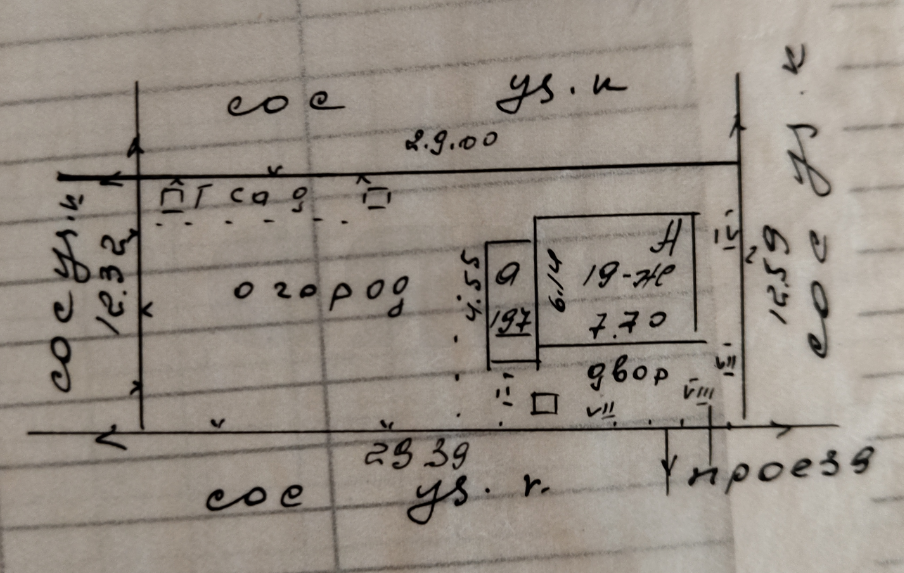 сос уз. к
29.00
сос уз. к
12.32
Г сад
огород
4.55
а
197
6.14
А
19-ж
7.70
двор
VII
VIII
VII
IV
12.59
сос уз. к
29 39
сос уз. г.
проезд